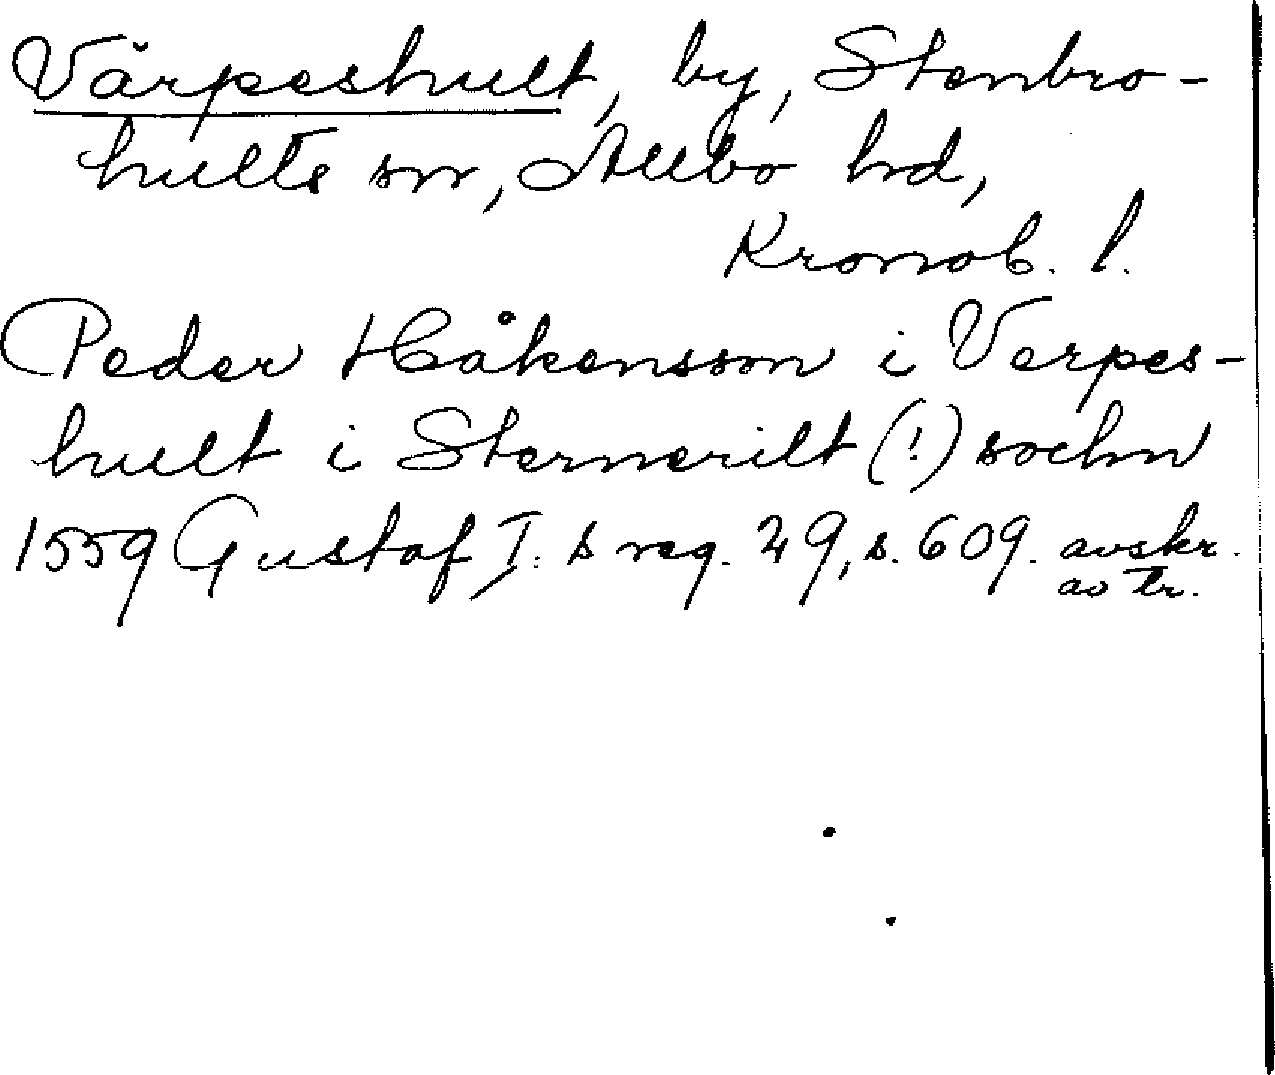 Värpeshult, by, Stenbro-
hults sn, Allbo hd,
Kronob. l.
Peder Håkensson i Verpes-
hult i Sternerilt (!) sochn
1559 Gustaf I:s reg. 29, s. 609. avskr.
av tr.